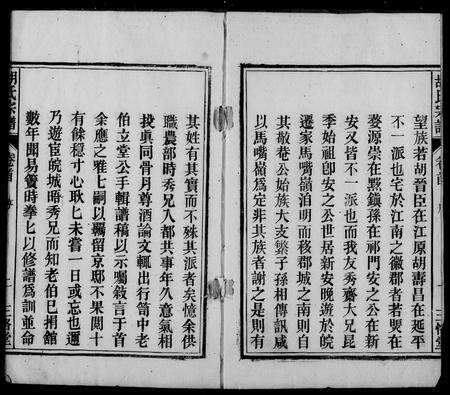 望族若胡晉臣在江原胡壽昌在延平
不一派也宅於江南之徽郡者若奭在
婺源崇在黟鎮孫在祁門安之公在新
安又皆不一派也而我友秀齋大兄昆
季始祖卽安之公世居新安晚遊於皖
遷家馬嘴嶺泊明而移郡城之南則自
其敬菴公始族大支繁子孫相傳訊咸
以馬嘴嶺為定非其族者謝之是則有
其姓有其實而不殊其派者矣憶余供
職農部時秀兄入都共事年久意氣相
投眞同骨月尊酒論文輒出行笥中老
伯立堂公手輯譜稿以示囑敘言于首
余應之唯七嗣以羈留京邸不果閱十
有餘稔寸心耿匕未嘗一日或忘也邇
乃遊宦皖城晤秀兄而知老伯已捐館
數年聞易簀時拳匕以修譜爲訓並命
胡氏宗譜
卷首
序
三省堂